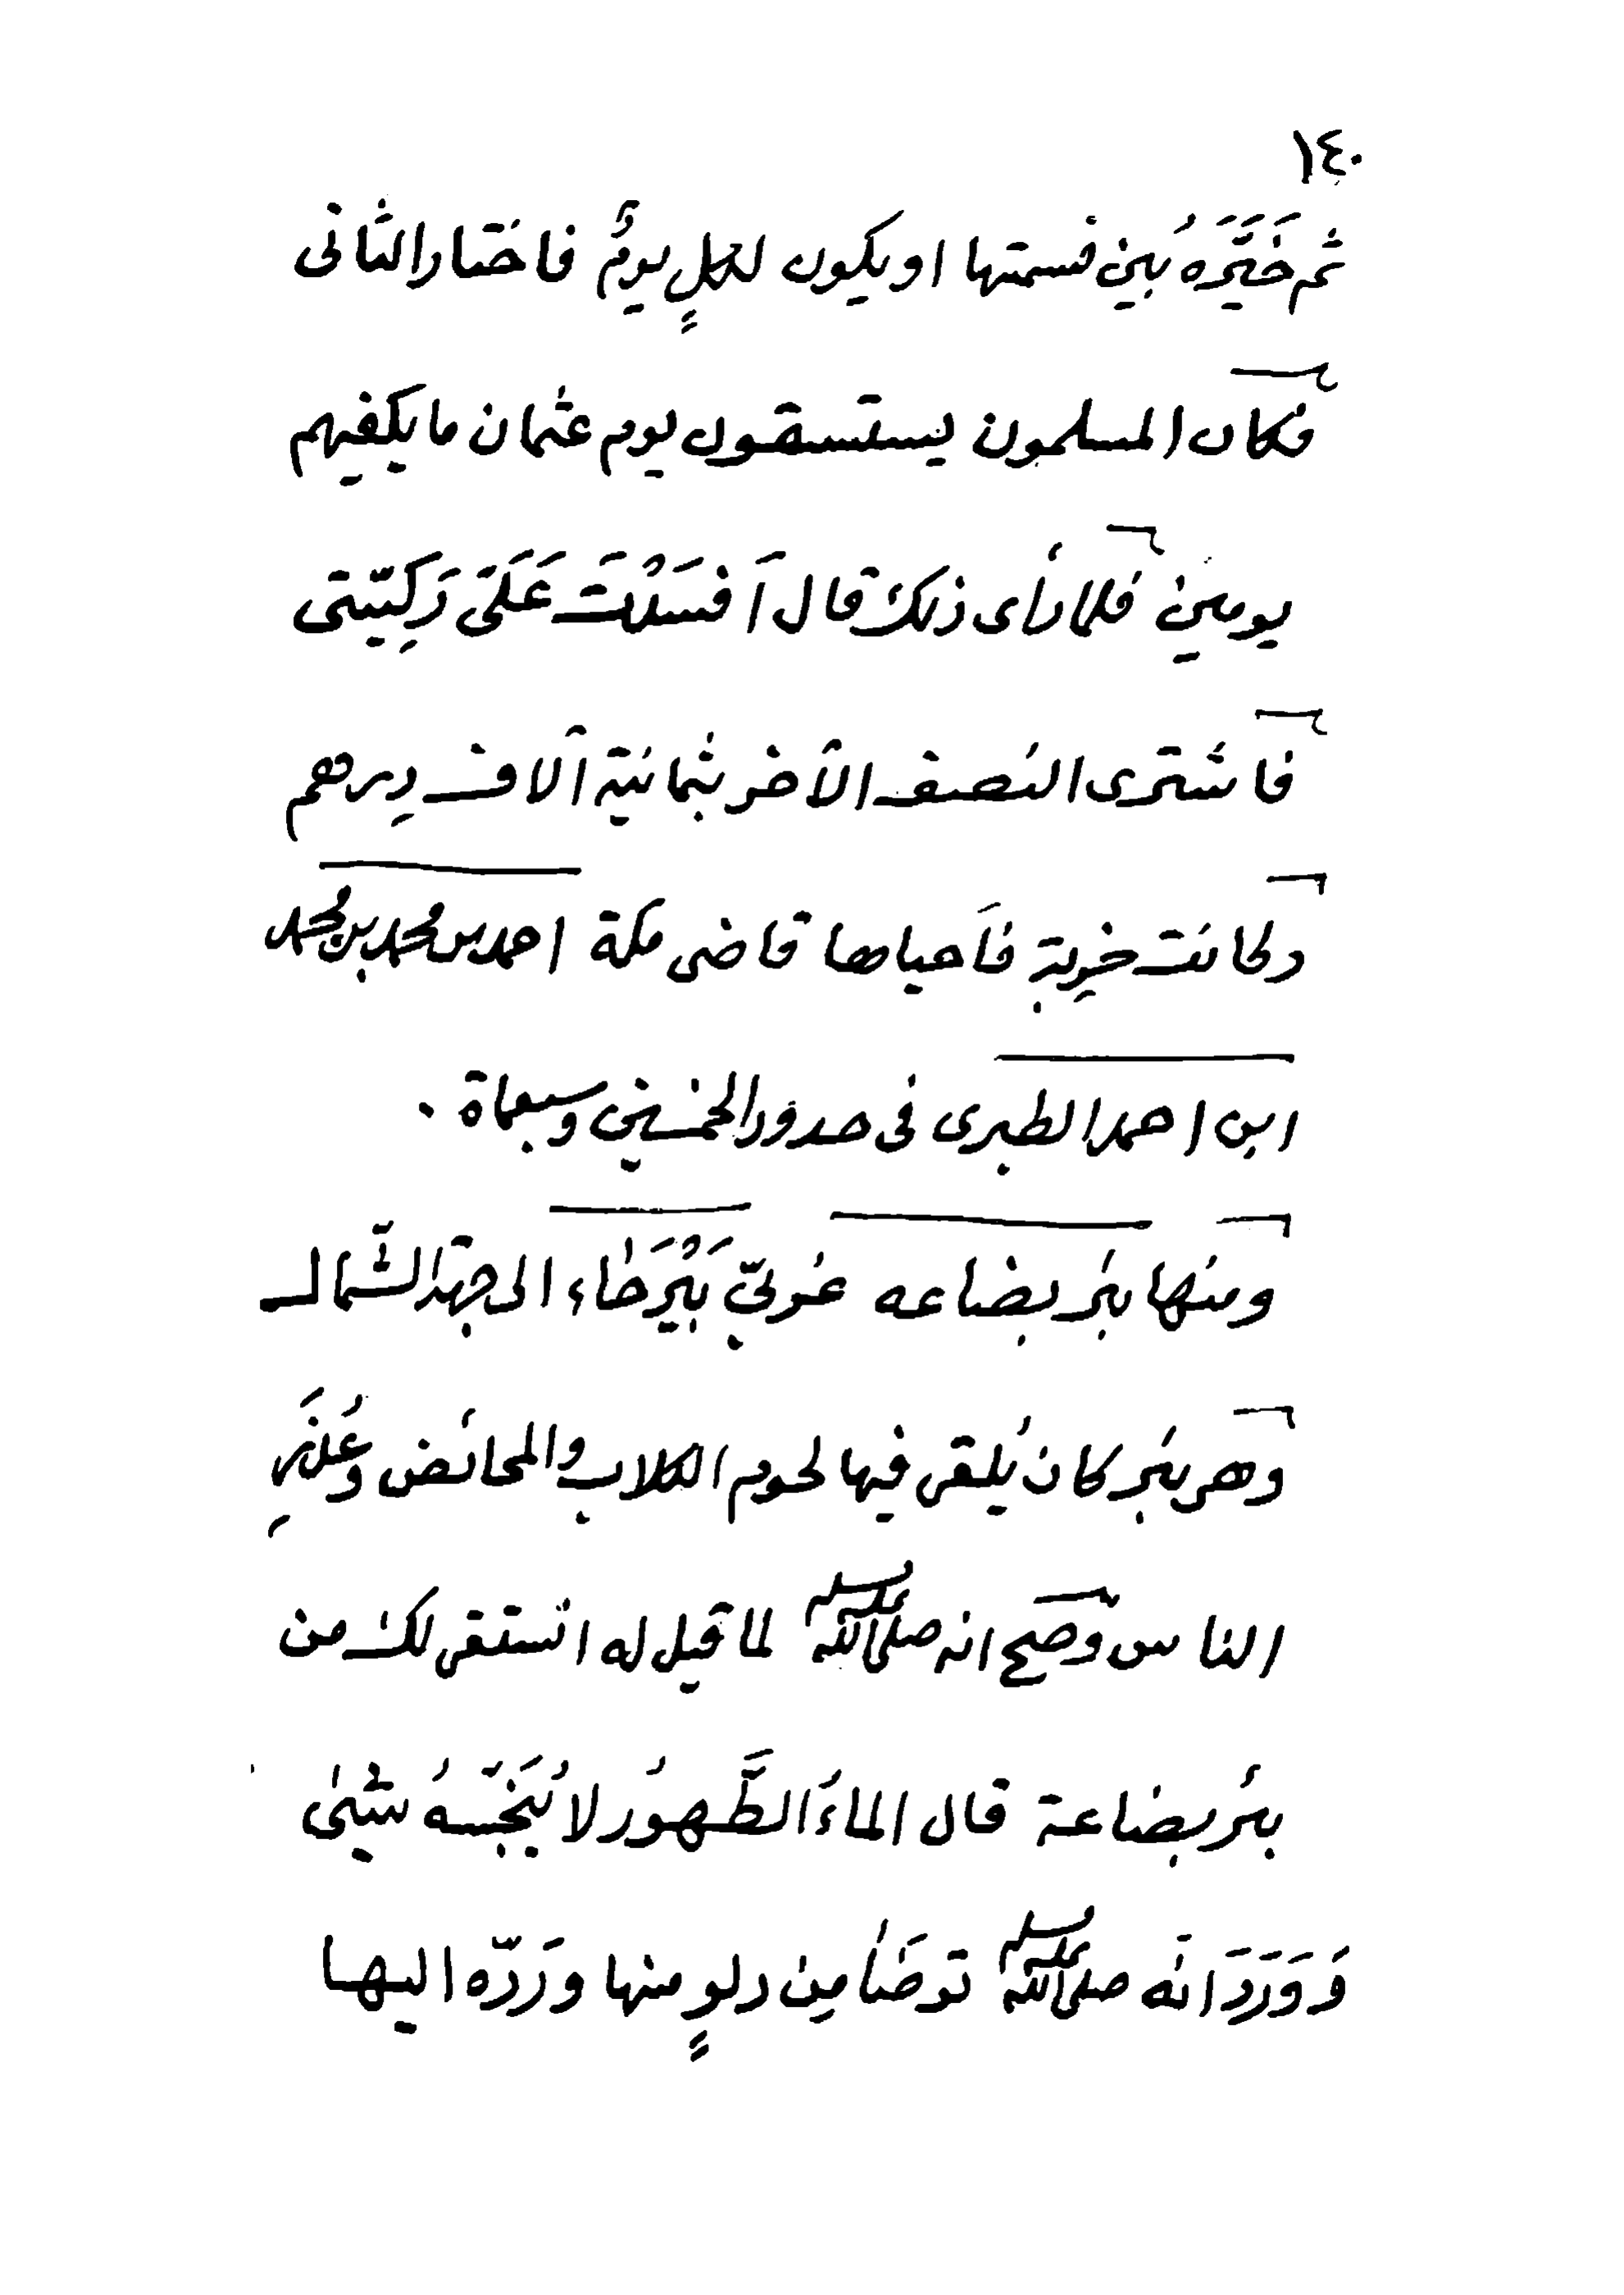 ١٤٠
ثم خَيَّرَهُ بَين قسمتها او يكون لكلٍ يومٌ فاختار الثانى
فكان المسلمون يستسقون يوم عثمان ما يكفيهم
يومين فلما رأى ذلك قال اَفسَدْتَ عَلَىَّ رَكِيّتى
فاشترى النصف الآخر بثمانية آلاف دِرهم
وكانت خربة فأحياها قاضى مكة احمد بن محمد بن محمد
ابن احمد الطبرى فى حدود الخمسين وسبعماة .
ومنها بئر بضاعه غربىّ بَيْرَحَاء الى جهة الشّمال
وهى بئر كان يُلقى فيها لحوم الكلاب والمحائض وعُذَرِ
الناس وصح انه صلى الله عليه وسلم لما قيل له انستقى لك من
بئر بضاعة قال الماءُ الطَّهورُ لا يُنَجّسهُ شئ
وَوَرَدَ انّه صلى الله عليه وسلم توضأ مِن دلوٍ منها ورَدّه اليها